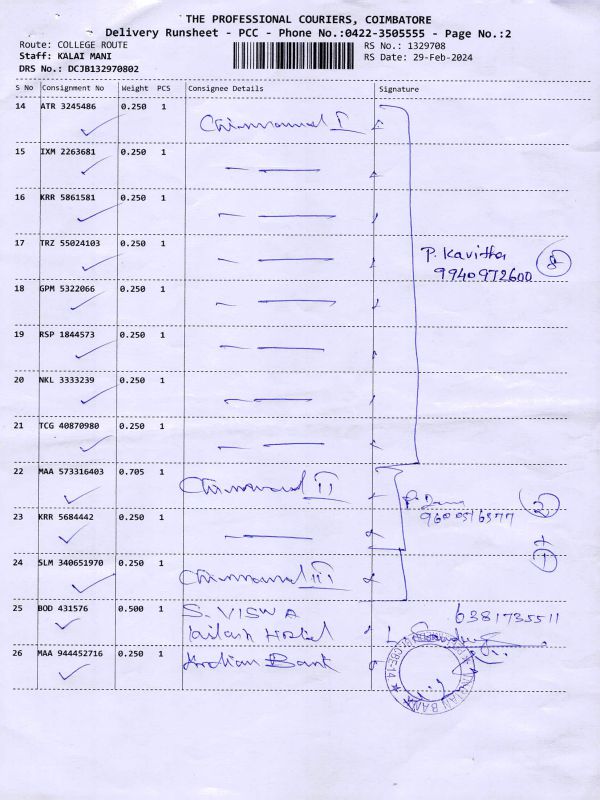 THE PROFESSIONAL COURIERS, COIMBATORE
Delivery Runsheet - PCC - Phone No.:0422-3505555 - Page No.:2
Route: COLLEGE ROUTE RS No.: 1329708
Staff: KALAI MANI RS Date: 29-Feb-2024
DRS No.: DCJB132970802
S No Consignment No Weight PCS Consignee Details Signature
14 ATR 3245486 0.250 1
15 IXM 2263681 0.250 1
16 KRR 5861581 0.250 1
17 TRZ 55024103 0.250 1 P. Kavitha 8
9940972600
18 GPM 5322066 0.250 1
19 RSP 1844573 0.250 1
20 NKL 3333239 0.250 1
21 TCG 40870980 0.250 1
22 MAA 573316403 0.705 1 II 2
23 KRR 5684442 0.250 1 +
24 SLM 340651970 0.250 1 III 1
25 BOD 431576 0.500 1 S. VISWA 6381735511
26 MAA 944452716 0.250 1 Indian Bank
INDIAN BANK